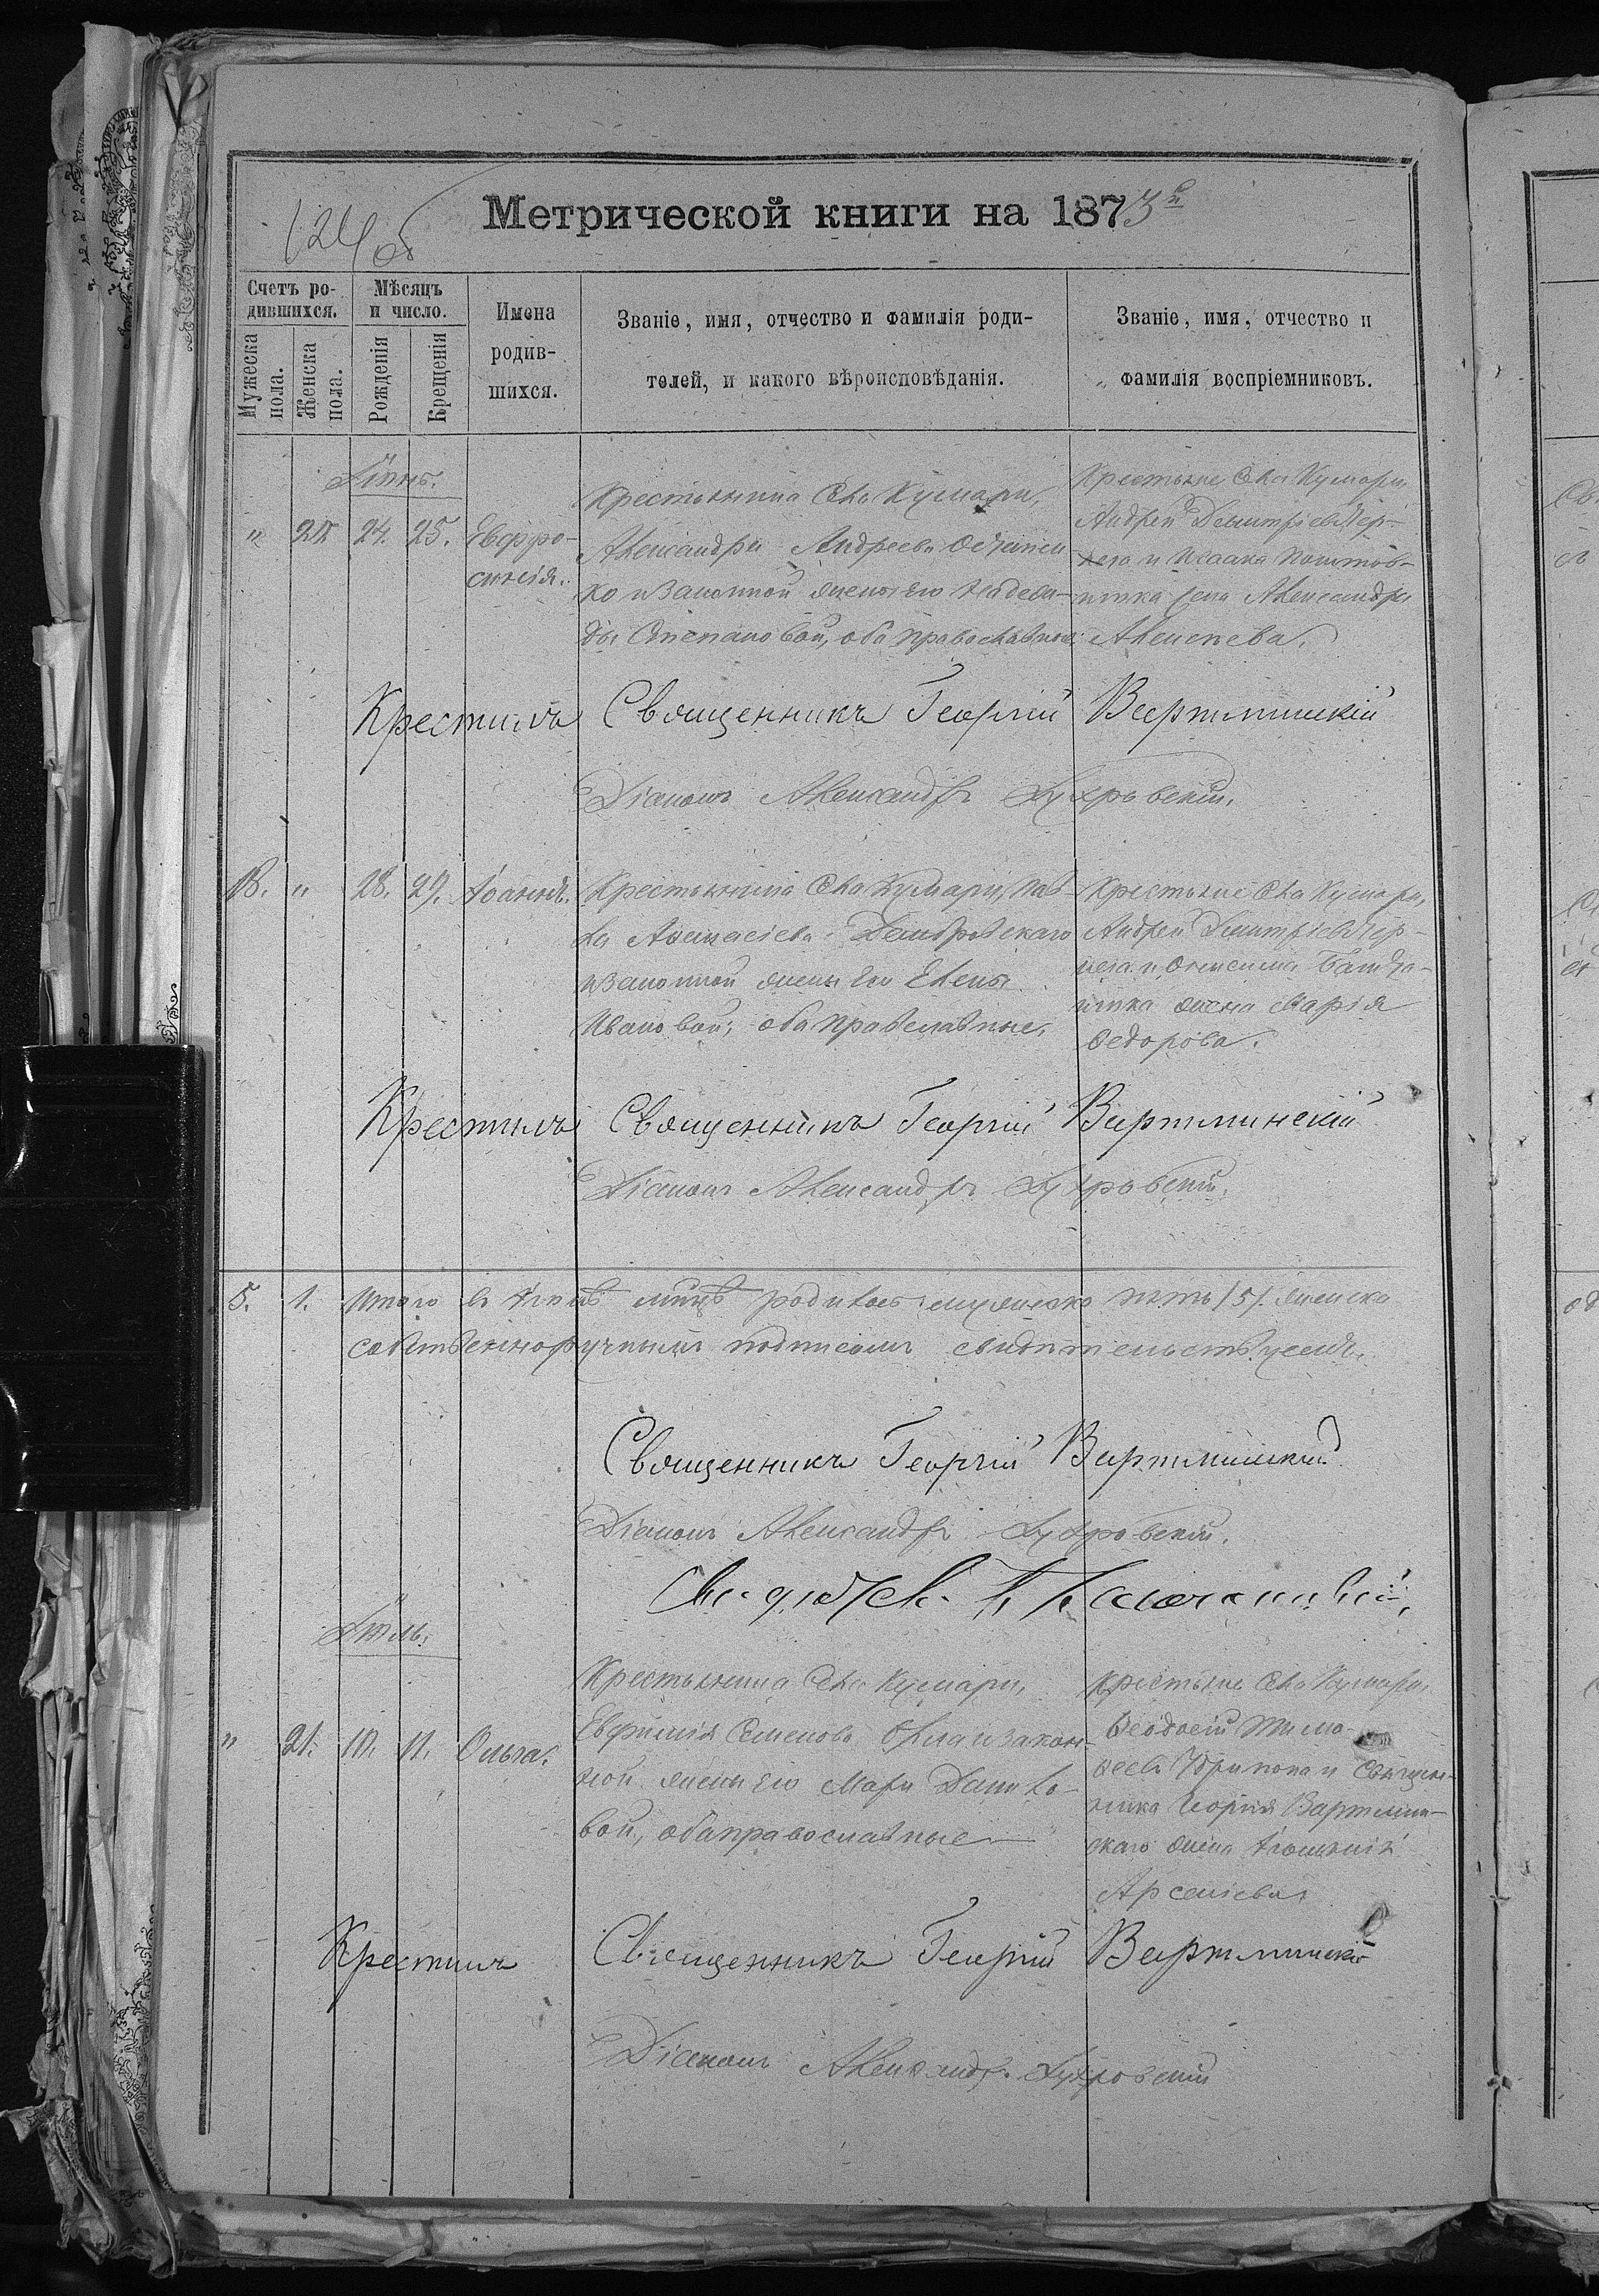 124 об
Метрической книги на 1873й
Счетъ ро-
дившихся.
Мужеска пола.
Женска пола.
Мѣсяцъ
и число.
Рожденія
Крещенія
Имена
родив-
шихся.
Званіе, имя, отчество и фамилія роди-
телей, и какого вѣроисповѣданія.
Званіе, имя, отчество и
фамилія воспріемниковъ.
Іюнь.
" 20 24. 25. Евфро-
синія.
Крестьянина Села Кумари,
Александра Андреева
ко и законной жены его
ды Степановой, оба православные
Крестьяне Села Кумари
Андрей Димитріевъ Чер-
нега и Исаака
жена Александра
Алексѣева.
Крестилъ Священникъ Георгій Вартминскій
Діаконъ Александръ
18. " 28. 29. Іоаннъ.
Крестьянина Села Кумари, Пав-
ла Аѳанасіева Домбровскаго
и законной жены его Елены
Ивановой, оба православные.
Крестьяне Села Кумари,
Андрей Димитріевъ Чер-
нега и
жена Марія
Ѳедорова.
Крестилъ Священникъ Георгій Вартминскій
Діаконъ Александръ
5. 1. Итого въ Іюнѣ мцѣ родилось мужеско пять /5/. женска
собственноручнымъ подписомъ свидѣтельствуемъ.
Священникъ Георгій Вартминскій
Діаконъ Александръ
Іюль.
" 21. 10. 11. Ольга.
Крестьянина Села Кумари,
Евфимія Семенова и закон-
ной жены его Маріи Данило-
вой, оба православные
Крестьяне Села Кумари,
Ѳеодосій Тимо-
ѳеевъ и Священ-
ника Георгія Вартмин-
скаго жена
Арсеніева
Крестилъ Священникъ Георгій Вартминскій
Діаконъ Александръ